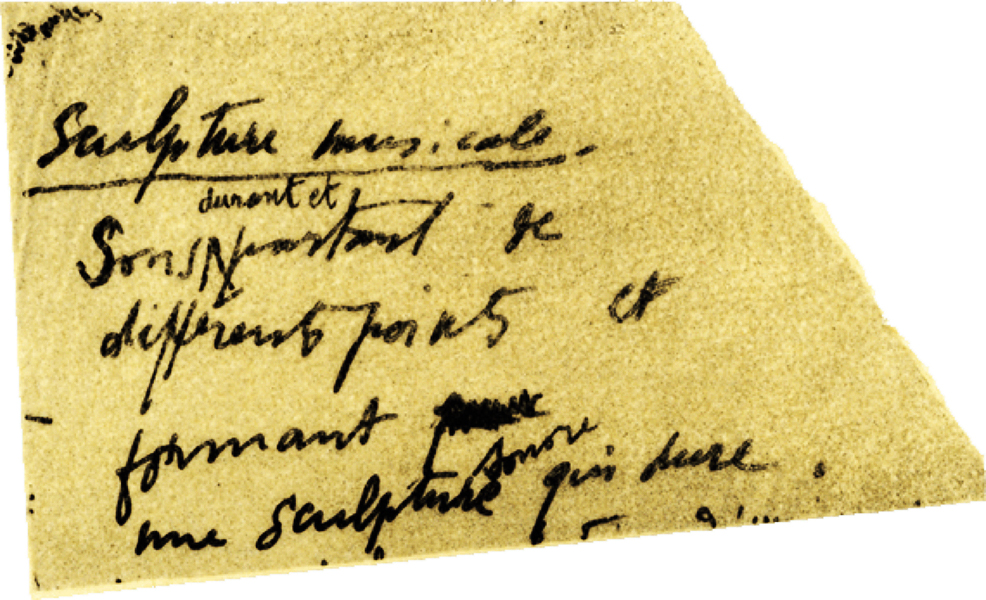 Sculpture musicale.
durant et
Sons partant de
différents points et
formant
sonore
une sculpture qui dure.